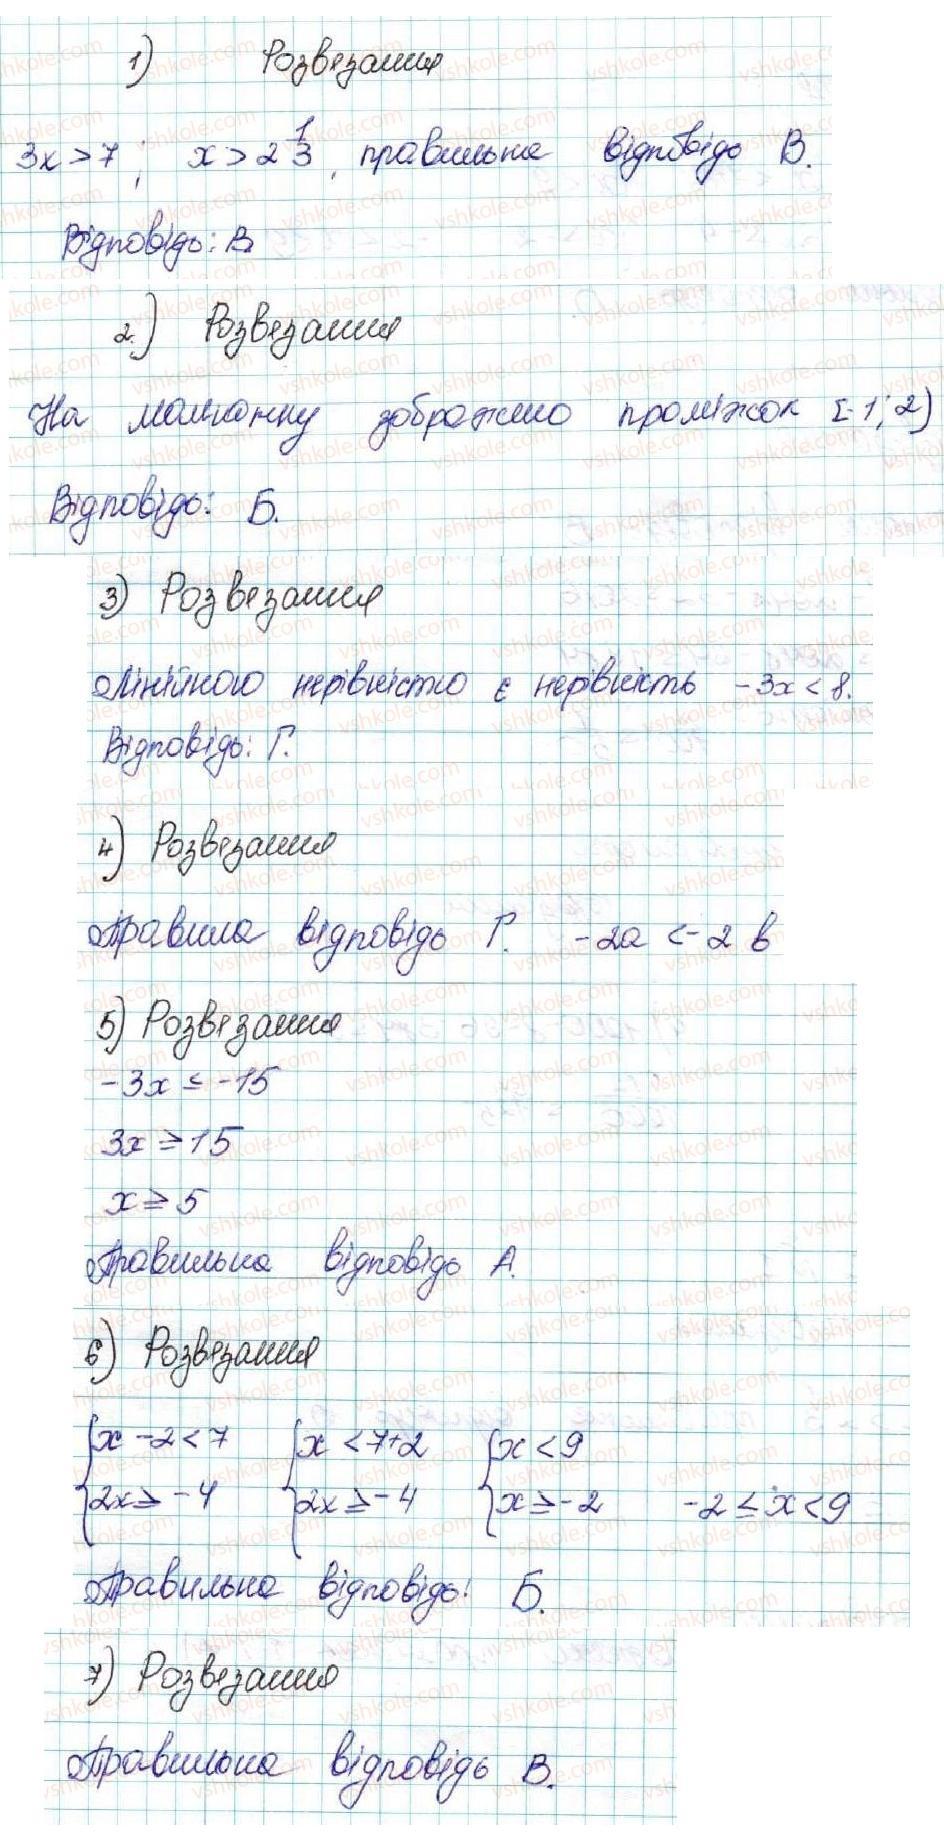 1) Розвязання
3x > 7 ; x > 2 1/3 , правильна відповідь В.
Відповідь: В
2.) Розвязання
На малюнку зображено проміжок [-1; 2)
Відповідь: Б.
3) Розвязання
Лінійного нерівністю є нерівність -3x < 8.
Відповідь: Г.
4) Розвязання
Правила відповідь Г. -2a < -2 b
5) Розвязання
-3x ≤ -15
3x ≥ 15
x ≥ 5
Правильна відповідь А.
6) Розвязання
{x - 2 < 7 {x < 7+2 {x < 9
{2x ≥ -4 {2x ≥ -4 {x ≥ -2 -2 ≤ x < 9
Правильна відповідь: Б.
7) Розвязання
Правильна відповідь В.